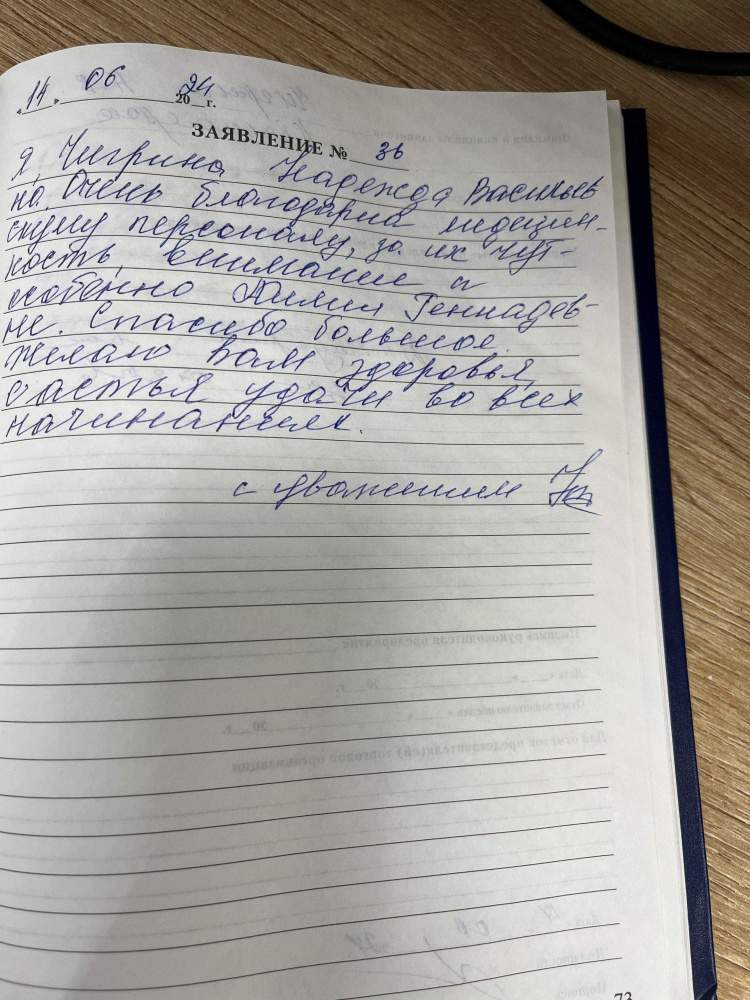 "14" 06 2024 г.
ЗАЯВЛЕНИЕ № 36
Я, Чигрина Надежда Васильев
на. Очень благодарна медецин-
скуму персоналу, за их чут-
кость, внимание и
особенно Лилии Геннадев-
не. Спасибо большое.
Желаю Вам здоровья,
счастья удачи во всех
начинаниях.
с уважением
73